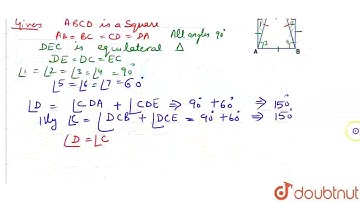 Given ABCD is a Square
AB = BC = CD = DA All angles 90°
DEC is equilateral Δ
DE = DC = EC
∠1 = ∠2 = ∠3 = ∠4 = 90°
∠5 = ∠6 = ∠7 = 60°
∠D = ∠CDA + ∠CDE ⇒ 90° + 60° ⇒ 150°
|||ly ∠C = ∠DCB + ∠DCE = 90° + 60° ⇒ 150°
∠D = ∠C
A B
doubtnut